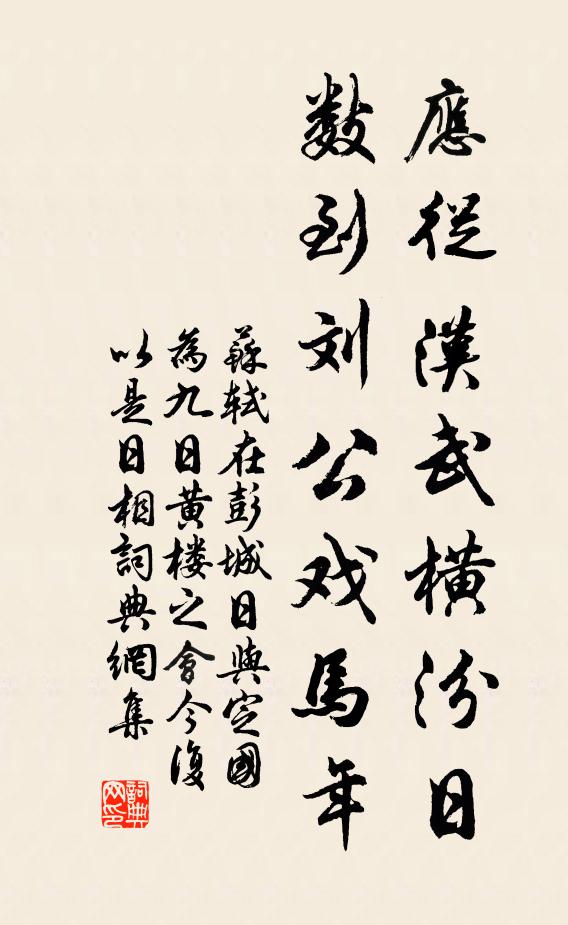 應從漢武橫汾日
數到刘公戏馬年
蘇軾在彭城日與定國
為九日黃楼之會今復
以是日相詞典網集
詞典
网印